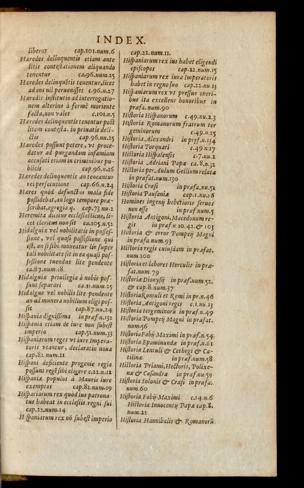 INDEX.
liberus cap.101.num.6
Haredes delinquentis etiam ante
litis contestationem aliquando
tenentur c.96.num.25
Haredes delinquentis tenentur, licet
ad eos nil peruenisset c.96.n.27
Haredis institutio ad interrogatio-
nem alterius à fermè moriente
facta, non valet c.101.n.5
Haredes delinquentis tenentur post
litem contesta. in primatis deli-
ctis cap.96.nu.25
Haredes possunt petere, vt proce-
datur ad purgandam infamiam
accusati etiam in criminibus pu-
blicis cap.96.n.26
Haredes delinquentis an tenentur
vti persecutioni cap.66.n.24
Hares quod defunctus mala fide
possidebat, an longo tempore præ-
scribat, agregia q. cap.73.nu.2
Heremita dicitur ecclesiasticus, li-
cet clericus non sit ca.105.n.52
Hidalguia vel nobilitatis in posses-
sione, vel quasi possessione qui
est, an ipsi moueatur lis super
tali nobilitate sit in ea quasi pos-
sessione tuendus lite pendente
ca.82.num.18.
Hidalguia priuilegia à nobis pos-
sunt separari ca.11.num.25
Hidalgus vel nobilis lite pendente
an ad munera nobilium eligi pos-
sit cap.87.nu.24
Hispania dignissima in præfa.n.132
Hispania etiam de iure non subest
imperio cap.55.num.33
Hispaniarum reges vt iura impera-
toris teneatur, declaratio noua
cap.82.num.21
Hispani deficiente progenie regia
possunt regẽ sibi eligere c.22.n.12
Hispania populos à Mauris iure
exemptas cap.82.num.09
Hispaniarum rex quod ius patrona-
tus habeat in ecclesiis regni sui
cap.22.num.14
Hispaniarum rex nõ subest imperio
cap.22.num.11.
Hispaniarum rex ius habet eligendi
episcopos cap.22.num.15
Hispaniarum rex iura Imperatoris
habet in regno suo cap.22.nu 13
Hispaniarum rex vt presbyter omni-
bus ita excellens honoribus in
præfa.num.90
Historia Hispanorum c.49.nu.23
Historia Romanorum fratrum ter
geminorum c.49.n.25
Historia Alexandri in pref.n.134
Historia Torquati c.49.n.27
Historia Hispalensis c.7.nu.2
Historia Adriani Papa ca.8.n.31
Historia per Aulum Gellium relata
in præfat.num.130
Historia Crasi in præfa.nu.52
Historia Pausania cap.1.nu.8
Homines ingenij hebetioris seruos
non esse in præf num.5
Historia Antigoni, Macedonum re-
gis in præf n 10.42. & 103
Historia & error Pompeij Magni
in præfa num.93
Historia regis cuiusdam in præfat.
num.100
Historia et labores Herculis in præ-
fat.num 79
Historia Dionysij in præf.num 52.
& cap.8.num.37
Historia Consulis et Romi in pr.n.48
Historia Antigoni regis c.1.nu.15
Historia tergeminorũ in præf n.49
Historia Pompeij Magni in præfat.
num 56
Historia Fabij Maximi in pr.n.54
Historia Epaminunda in præf.n.61
Historia Lentuli & Cethegi & Ca-
tilina in præf.num.58
Historia Priami, Hectoris, Polixe-
na & Casandra in præf nu 59
Historia Solonis & Crasi in præfa.
num.60
Historia Fabij Maximi c.14.n.6
Historia Innocencij Papa cap.8.
num.21
Historia Hannibalis & Romanorũ